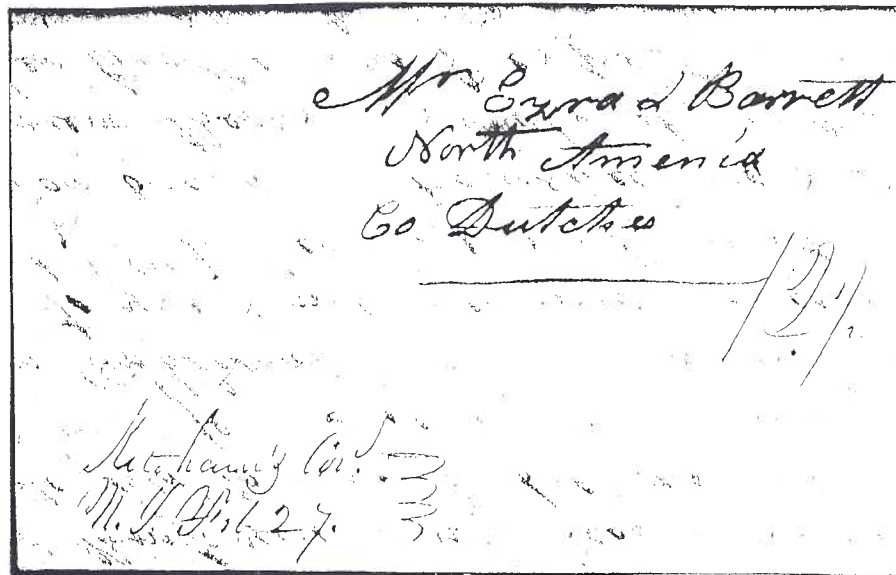 Mr Ezra L Barrett
North Amenia
Co Dutches
12½
Ketcham's Cor.
N. Y. Feb 27.